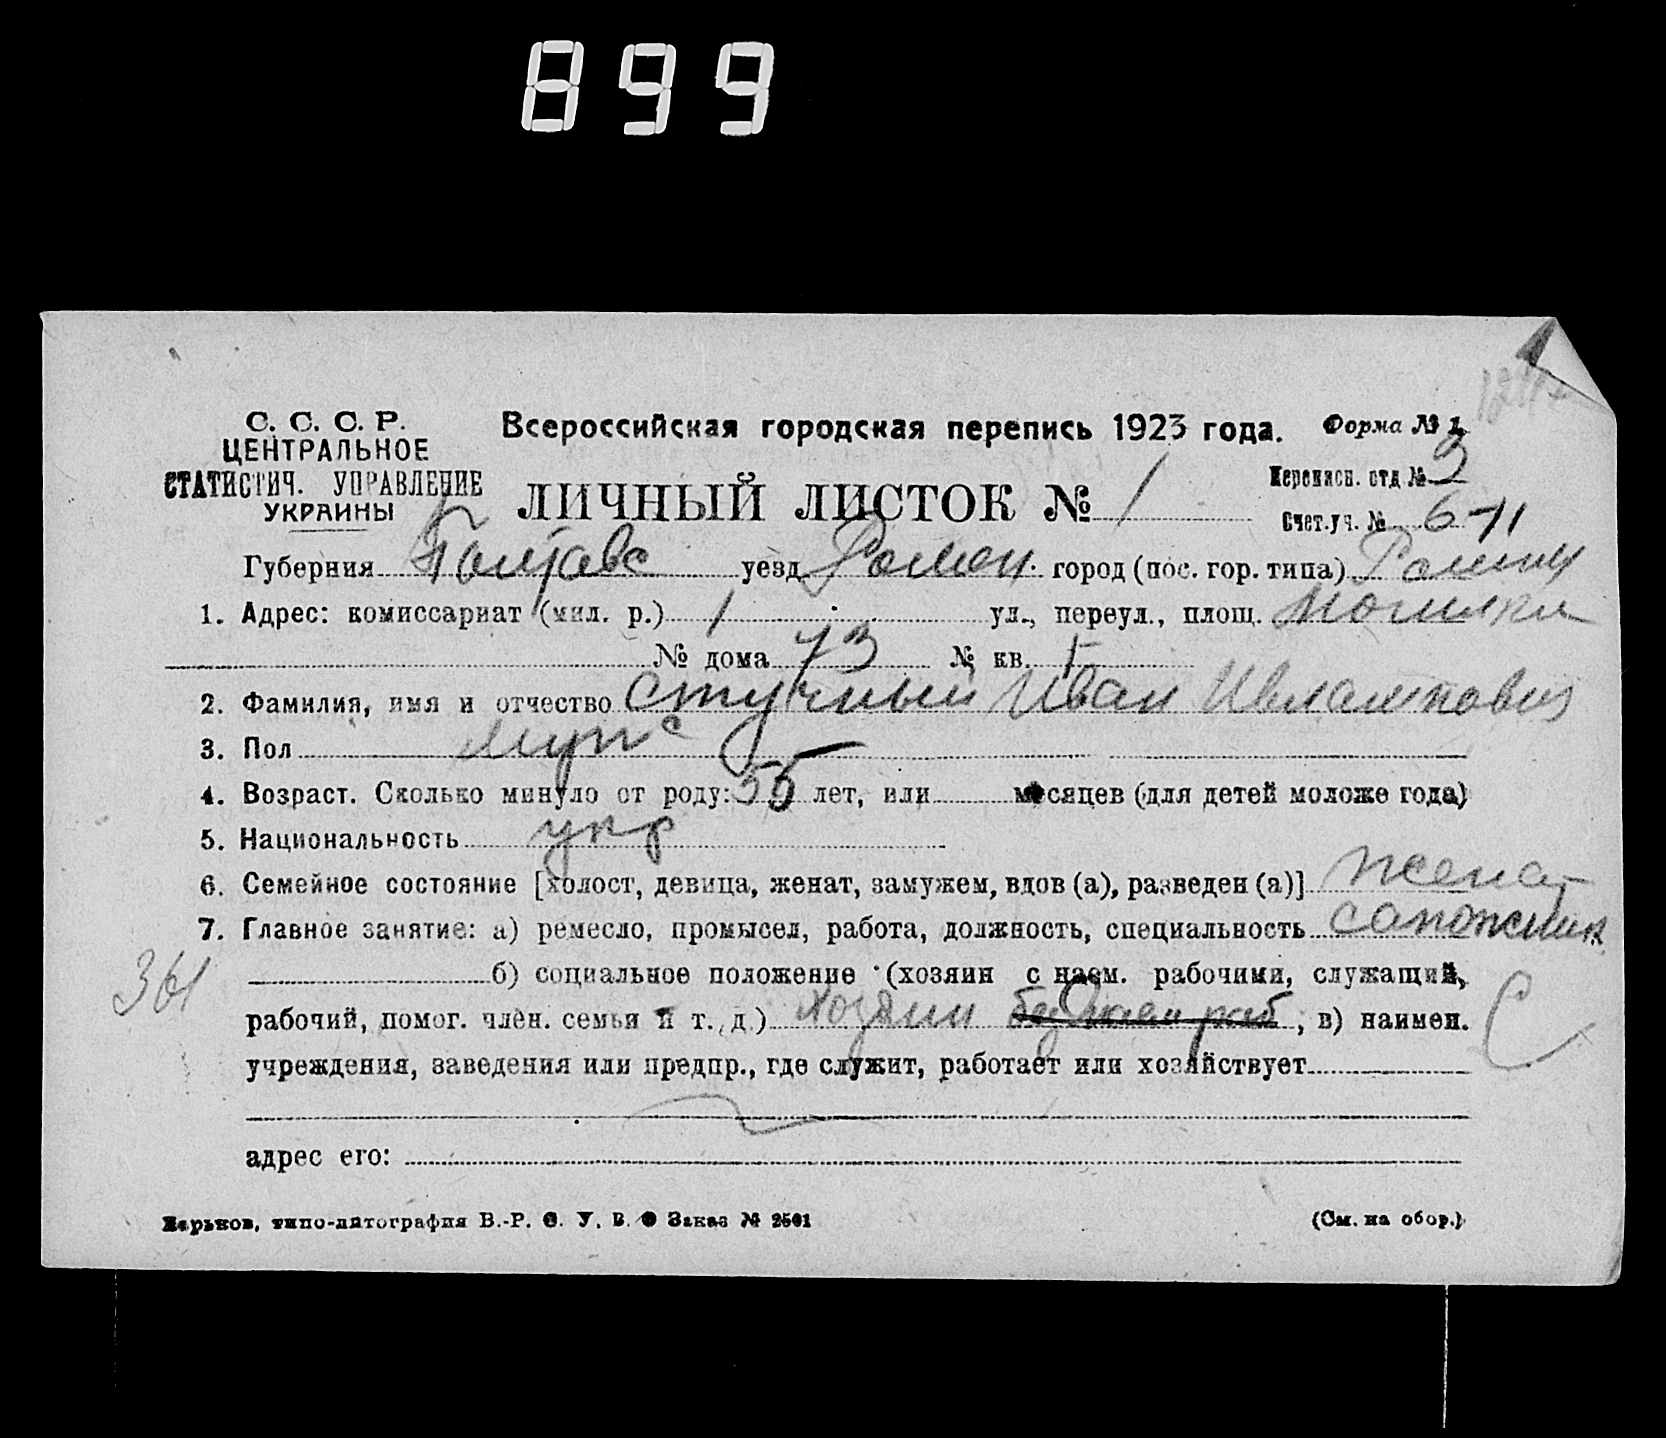 899
С. С. С. Р.
ЦЕНТРАЛЬНОЕ
СТАТИСТИЧ. УПРАВЛЕНИЕ
УКРАИНЫ
Всероссийская городская перепись 1923 года.
Форма № 1.
ЛИЧНЫЙ ЛИСТОК № 1
Переписн. отд. № 3
Счет. уч. № 6-11
Губерния Полтавс уезд Ромен. город (пос. гор. типа) Ромны
1. Адрес: комиссариат (мил. р.) 1 ул., переул., площ.
№ дома 73 № кв. 1
2. Фамилия, имя и отчество Стучный Иван Ивлампович
3. Пол мужс
4. Возраст. Сколько минуло от роду: 55 лет, или месяцев (для детей моложе года)
5. Национальность укр
6. Семейное состояние [холост, девица, женат, замужем, вдов (а), разведен (а)] женат
7. Главное занятие: а) ремесло, промысел, работа, должность, специальность сапожник
361
б) социальное положение (хозяин с наем. рабочими, служащий,
рабочий, помог. член. семьи и т. д.) хозяин без наем раб, в) наимен.
С
учреждения, заведения или предпр., где служит, работает или хозяйствует
адрес его:
Харьков, типо-литография В.-Р. С. У. В. О Заказ № 2501
(См. на обор.)